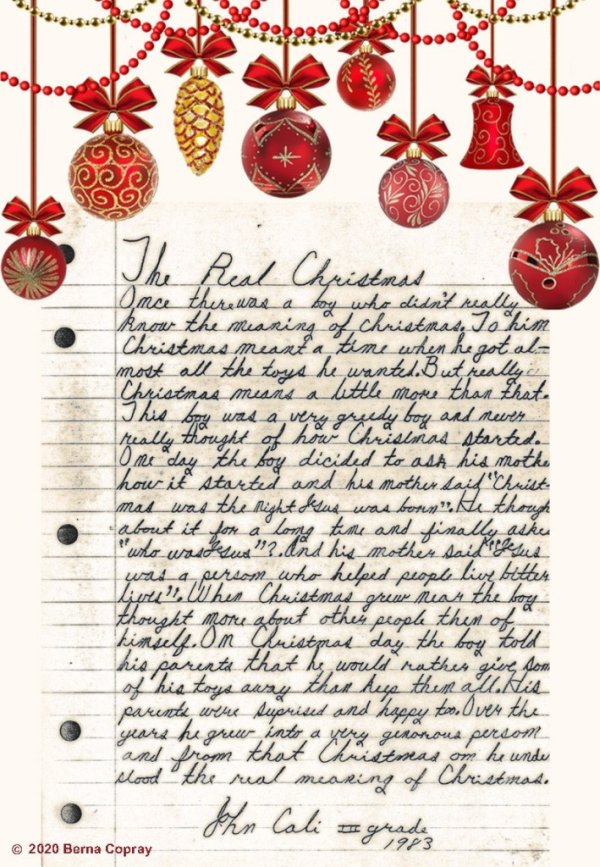 The Real Christmas
Once there was a boy who didn't really
know the meaning of christmas. To him
Christmas meant a time when he got al-
most all the toys he wanted. But really
Christmas means a little more than that.
This boy was a very greedy boy and never
really thought of how Christmas started.
One day the boy dicided to ask his mothe
how it started and his mother said "Christ-
mas was the night Jesus was born". He though
about it for a long time and finally aske
"who was Jesus"? And his mother said "Jesus
was a person who helped people live bitter
lives". When Christmas grew near the boy
thought more about other people then of
himself. On Christmas day the boy told
his parents that he would rather give som
of his toys away than keep them all. His
parents were suprised and happy too. Over the
years he grew into a very genorous person
and from that Christmas on he unde
stood the real meaning of Christmas.
John Cali III grade
1983
© 2020 Berna Copray